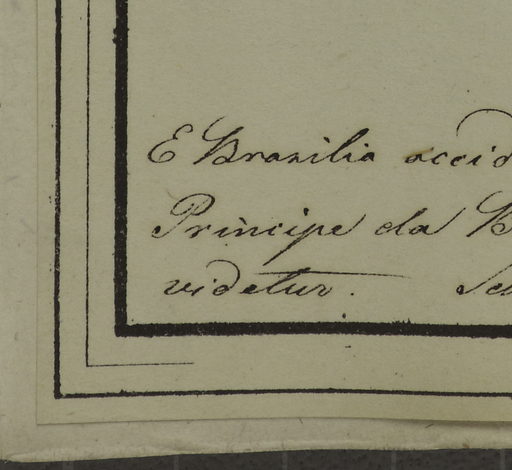 E Brasilia accid
Principe da B
videtur. Sch